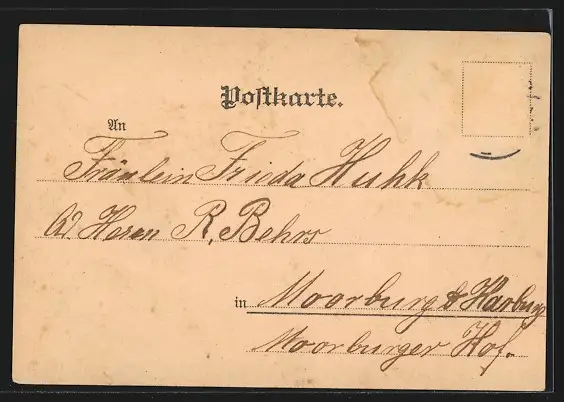 Postkarte.
An
Fräulein Frieda Huhk
Ad. Herrn R. Behrs
in Moorburg b Harburg
Moorburger Hof.